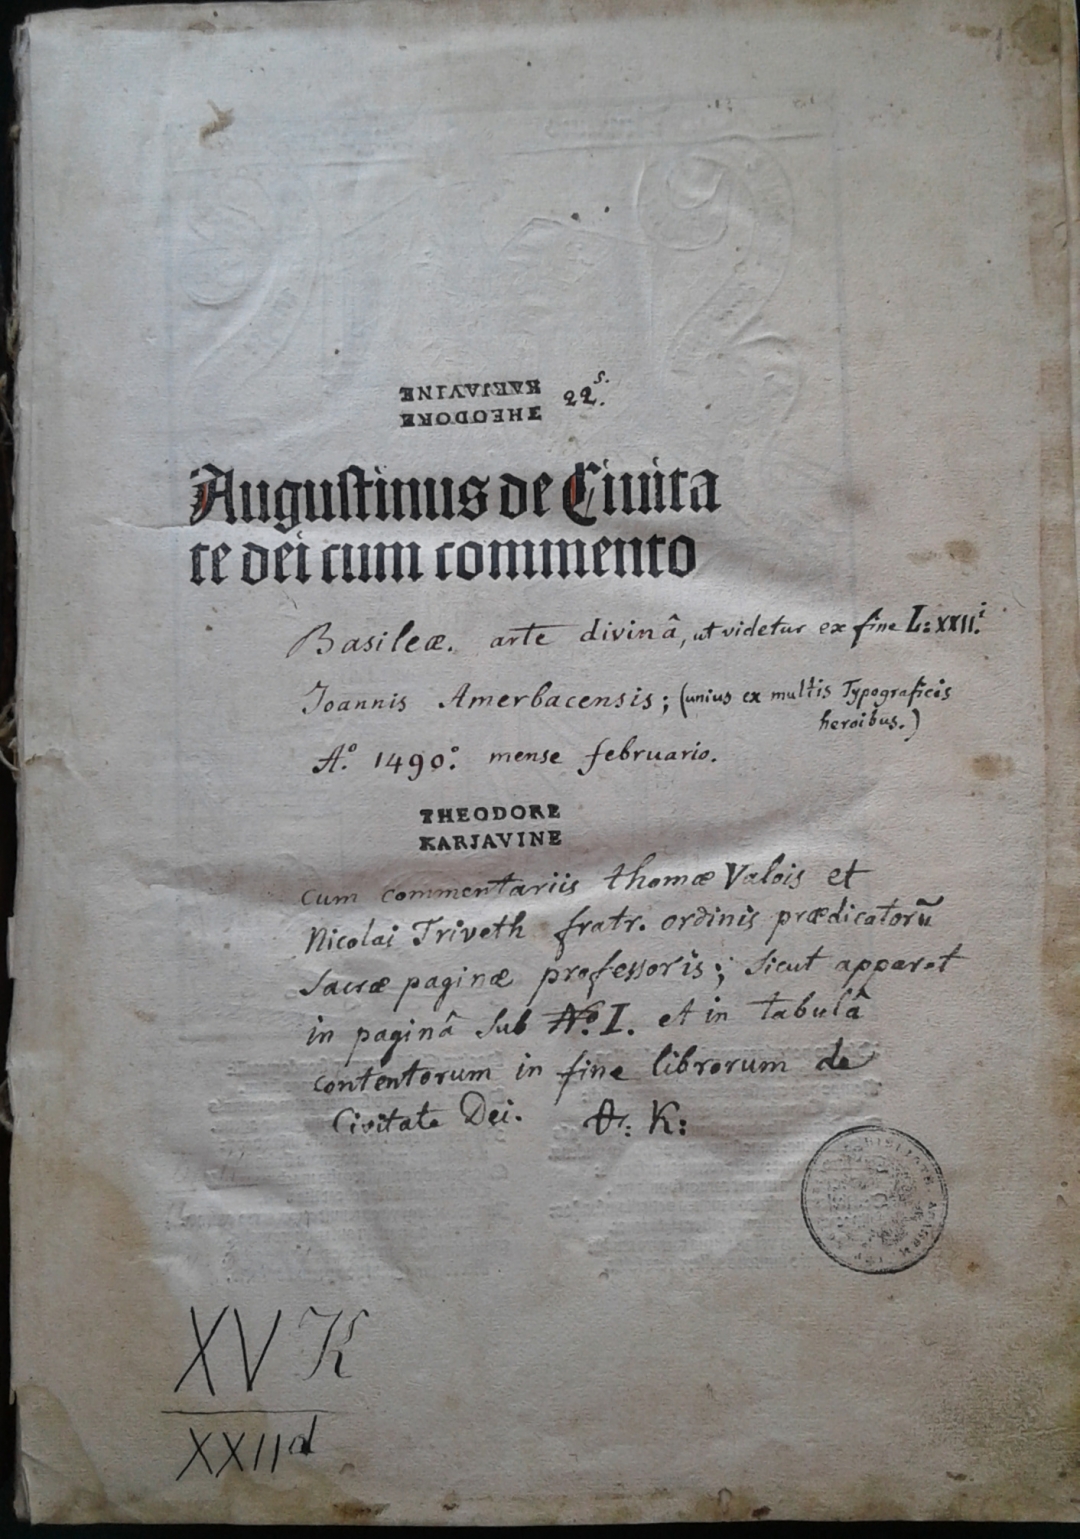 THEODORE
KARJAVINE
22.s.
Augustinus de Ciuita
te dei cum commento
Basileæ. arte divinâ, ut videtur ex fine L: XXII.i
Joannis Amerbacensis; (unius ex multis Typograficis
heroibus.)
A.o 1490.o mense februario.
THEODORE
KARJAVINE
cum commentariis thomæ Valois et
Nicolai Triveth fratr. ordinis prædicatorũ
Sacræ paginæ professoris; sicut apparet
in paginâ sub No. I. et in tabulâ
contentorum in fine librorum de
Civitate Dei. K:
XV K
XXII d